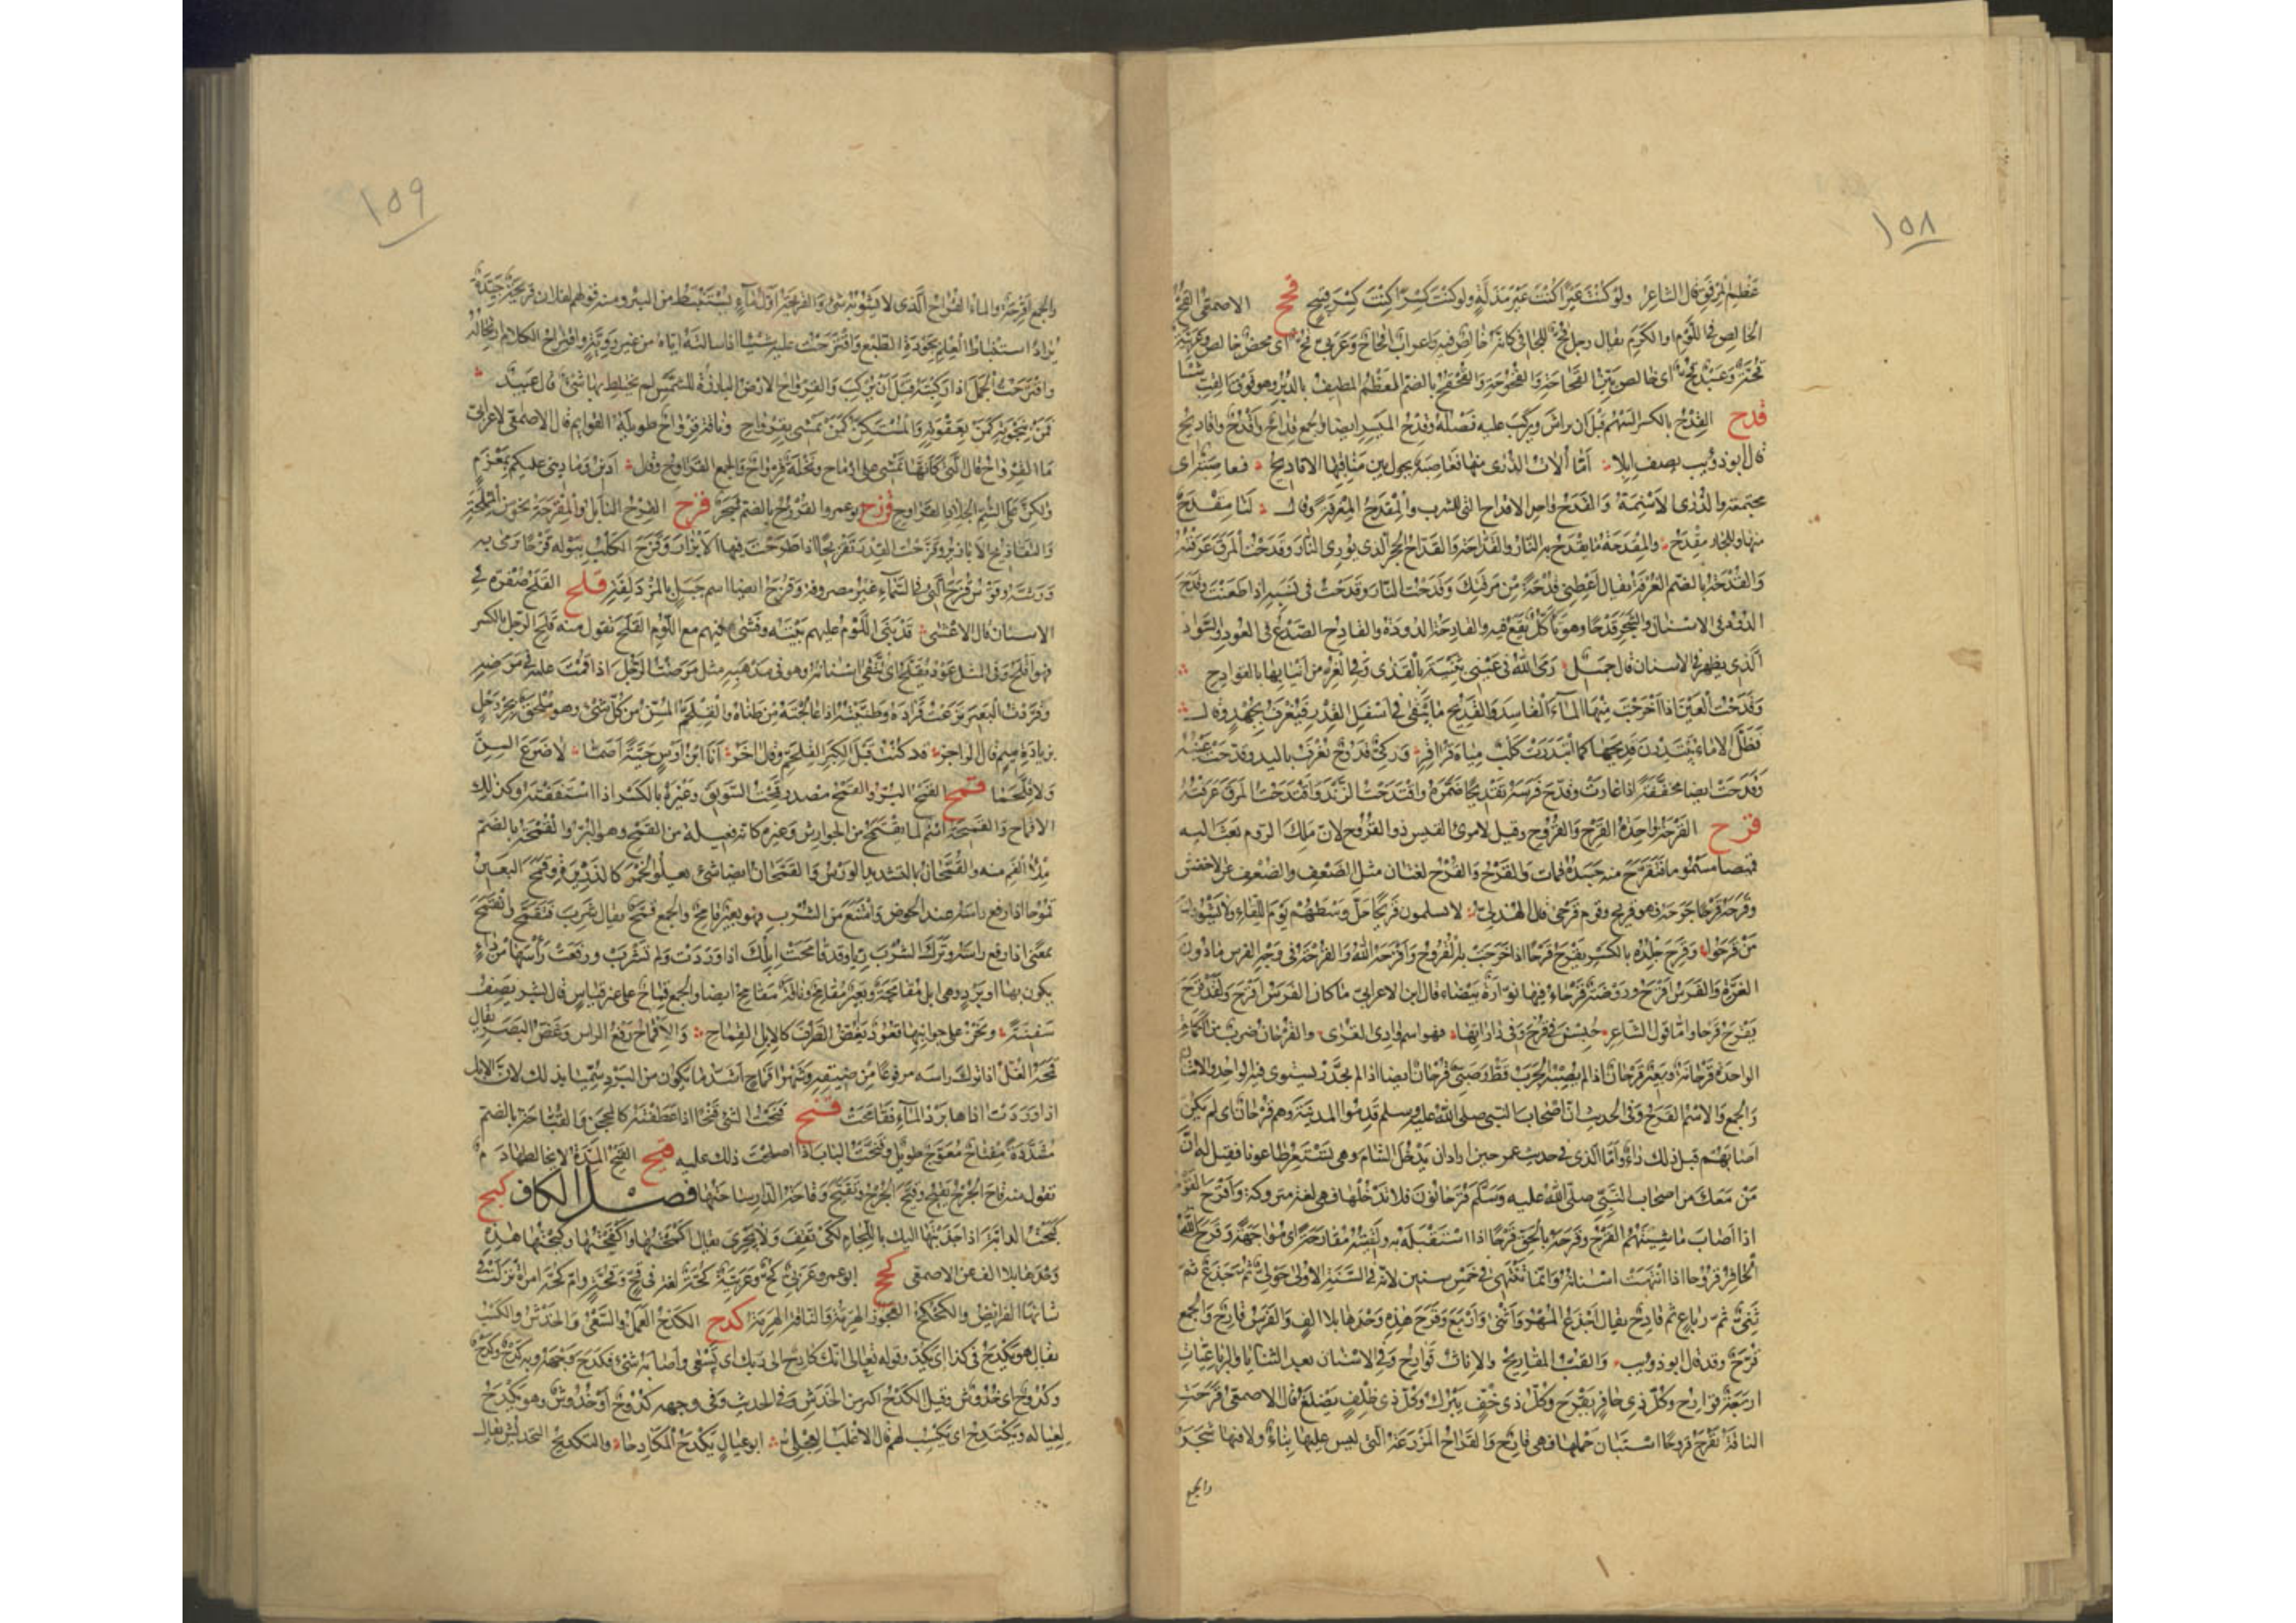 ١٥٨
عظم المرفق قال الشاعر ولو كنت عيرا كنت عير مذلة ولو كنت كسرا كنت كسر قبيح قحح الاصمعي القح
الخالص في اللؤم او الكرم يقال رجل قح للجافي كانه خالص فيه واعراب اقحاح وعربي قح اي محض خالص وعربية
قحة وعبد قح اي خالص بين القحاحة والقحوحة والقحقح بالضم العظم المطيف بالدبر وهو فوق القب شيئا
قدح القدح بالكسر السهم قبل ان يراش ويركب عليه نصله وقدح الميسر ايضا والجمع قداح واقدح واقاديح
قال ابو ذويب يصف ابلا اما الات الذرى منها فعاصبة يجول بين مناقيها الاقاديح
مجتمعة والذرى الاسنمة والقدح واحد الاقداح التي للشرب والمقدح المغرفة وقال لنا مقدح
منها وللجار مقدح والمقدحة ما يقدح به النار والقداحة والقداح الحجر الذي يوري النار وقدحت المرق غرفته
والقدحة بالضم الغرفة يقال اعطني قدحة من مرقتك وقدحت النار وقدحت في نسبه اذا طعنت وقدح
الدود في الاسنان والشجر قدحا وهو تاكل يقع فيه والقادحة الدودة والقادح الصدع في العود والسواد
الذي يظهر في الاسنان قال جميل رمى الله في عيني بثينة بالقذى وفي الغر من انيابها بالقوادح
وقدحت العين اذا اخرجت منها الماء الفاسد والقديح ما يبقى في اسفل القدر فيغرف بجهد وقال
فظل الاماء يبتدرن قديحها كما ابتدرت كلب مياه قراقر وركي قدوح تغرف باليد وقدحت عينه
وقدحت ايضا مخففة اذا غارت وقدح فرسه تقديحا ضمره واقتدحت الزند واقتدحت المرق غرفته
قرح القرحة واحدة القرح والقروح وقيل لامرئ القيس ذو القروح لان ملك الروم بعث اليه
قميصا مسموما فتقرح منه جسده فمات والقرح والقرح لغتان مثل الضعف والضعف عن الاخفش
وقرحه قرحا جرحه فهو قريح وقوم قرحى قال الهذلي لا يسلمون قريحا حل وسطهم يوم اللقاء ولا يشوون
من قرحوا وقرح جلده بالكسر يقرح قرحا اذا خرجت به القروح واقرحه الله والقرحة في وجه الفرس ما دون
الغرة والفرس اقرح وروضة قرحاء فيها نوارة بيضاء قال ابن الاعرابي ما كان الفرس اقرح ولقد قرح
يقرح قرحا واما قول الشاعر حبسن في قرح وفي داراتها فهو اسم وادي القرى والقرحان ضرب من الكمأة
الواحدة قرحانة وبعير قرحان اذا لم يصبه الجرب قط وصبي قرحان ايضا اذا لم يجدر يستوي فيه الواحد والاثنان
والجمع والاسم القرح وفي الحديث ان اصحاب النبي صلى الله عليه وسلم قدموا المدينة وهم قرحان اي لم يكن
اصابهم قبل ذلك داء واما الذي في حديث عمر حين اراد ان يدخل الشام وهي تستعر طاعونا فقيل له ان
من معك من اصحاب النبي صلى الله عليه وسلم قرحانون فلا تدخلها فهي لغة متروكة واقرح القوم
اذا اصاب ماشيتهم القرح وقرحه بالحق قرحا اذا استقبله به ولقيته مقارحة اي مواجهة وقرح
الحافر قروحا اذا انتهت اسنانه وانما تنتهي في خمس سنين لانه في السنة الاولى حولي ثم جذع ثم
ثني ثم رباع ثم قارح يقال اجذع المهر واثنى واربع وقرح هذه وحدها بلا الف والفرس قارح والجمع
قرح وقد قال ابو ذويب والقب المقاريح والاناث قوارح وفي الاسنان بعد الثنايا والرباعيات
اربعة قوارح وكل ذي حافر يقرح وكل ذي خف يبزل وكل ذي ظلف يصلغ قال الاصمعي قرحت
الناقة تقرح قروحا استبان حملها فهي قارح والقراح المزرعة التي ليس عليها بناء ولا فيها شجر
والجمع
١٥٩
والجمع اقرحة والماء القراح الذي لا يشوبه شيء والقريحة اول ماء يستنبط من البئر ومنه قولهم لفلان قريحة جيدة
يراد استنباط العلم بجودة الطبع واقترحت عليه شيئا اذا سالته اياه من غير روية واقتراح الكلام ارتجاله
واقترحت الجمل اذا ركبته قبل ان يركب والقرواح الارض البارزة للشمس لم يختلط بها شيء قال عبيد
فمن بنجوته كمن بعقوته والمستكن كمن يمشي بقرواح وناقة قرواح طويلة القوايم قال الاصمعي لاعرابي
ما القرواح قال التي كانها تمشي على ارماح ونخلة قرواح والجمع القراويح وقال ادين وما ديني عليكم بمغرم
ولكن على الشم الجلاد القراوح قرزح ابو عمرو القرزح بالضم شجر قزح القزح التابل والمقزحة نحو من المملحة
والتقازيح الابازير وقزحت القدر تقزيحا اذا طرحت فيها الابزار وقزح الكلب ببوله قزحا رمى به
ورشه وقوس قزح التي في السماء غير مصروفة وقزح ايضا اسم جبل بالمزدلفة قلح القلح صفرة في
الاسنان قال الاعشى قد بنى اللؤم عليهم بيته وفشى فيهم مع اللؤم القلح تقول منه قلح الرجل بالكسر
فهو اقلح وفي المثل عود يقلح اي تنقى اسنانه وهو في مذهبه مثل مرضت الرجل اذا قمت عليه في مرضه
وقردت البعير نزعت قراده وطنيته اذا عالجته من طناه والقلحم المسن من كل شيء وهو ملحق بجردحل
بزيادة ميم قال الراجز قد كنت قبل الكبر القلحم وقال اخر انا ابن اوس حية اصما لا ضرع السن
ولا قلحما قمح القمح البر والقمح مصدر قمحت السويق وغيره بالكسر اذا استففته وكذلك
الاقتماح والقميحة اسم لما يقتمح من الجوارش وغيره كانه فعيلة من القمح وهو البر والقمحة بالضم
ملء الفم منه والقمحان بالتشديد الورس والقمحان ايضا شيء يعلو الخمر كالذريرة وقمح البعير
قموحا اذا رفع راسه عند الحوض وامتنع من الشرب فهو بعير قامح والجمع قمح يقال شرب فتقمح وانقمح
بمعنى اذا رفع راسه وترك الشرب ريا وقد قامحت ابلك اذا وردت ولم تشرب ورفعت رأسها من داء
يكون بها او برد وهي ابل مقامحة وبعير مقامح وناقة مقامح ايضا والجمع قماح على غير قياس قال بشر يصف
سفينة ونحن على جوانبها قعود نغض الطرف كالابل القماح والاقماح رفع الراس وغض البصر يقال
اقمحه الغل اذا ترك راسه مرفوعا من ضيقه وشهرا قماح اشد ما يكون من البرد سميا بذلك لان الابل
اذا وردت اذاها برد الماء فقامحت قنح قنحت الشيء قنحا اذا عطفته كالمحجن والقناحة بالضم
مشددة مفتاح معوج طويل وقنحت الباب اذا اصلحت ذلك عليه قيح القيح المدة لا يخالطها دم
تقول منه قاح الجرح يقيح وقيح الجرح وتقيح وقاحة الدار ساحتها فصل الكاف كبح
كبحت الدابة اذا جذبتها اليك باللجام لكي تقف ولا تجري يقال اكمحتها واكفحتها وكبحتها هذه
وحدها بلا الف عن الاصمعي كحح ابو عمرو عربي كح وعربية كحة لغة في قح وقحة وام كحة امرأة نزلت في
شانها الفرائض والكحكح العجوز الهرمة والناقة الهرمة كدح الكدح العمل والسعي والخدش والكسب
يقال هو يكدح في كذا اي يكد وقوله تعالى انك كادح الى ربك اي تسعى واصابه شيء فكدح وجهه وبه كدح
وكدوح اي خدوش وقيل الكدح اكبر من الخدش وفي الحديث وفي وجهه كدوح او خدوش وهو يكدح
لعياله ويكتدح اي يكتسب لهم قال الاغلب العجلي ابو عيال يكدح المكادحا والتكديح التخديش يقال